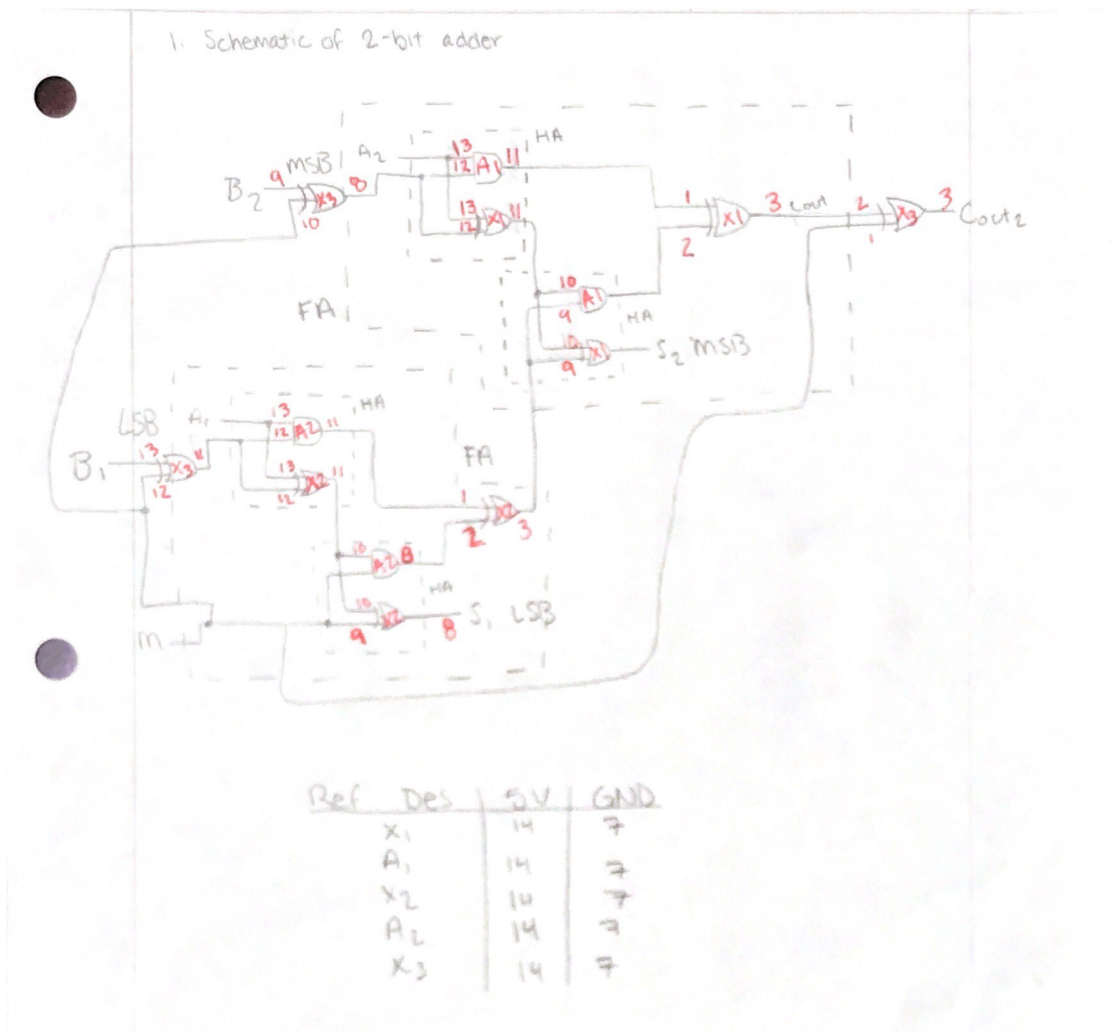 1. Schematic of 2-bit adder
HA
MSB A2 13
12 A1 11
B2 9 X3 8
10
13
12 X1 11
1
2 X1 3 Cout 2
1 X3 3 Cout2
FA
10
9 A1
HA
10
9 X1 S2 MSB
LSB A1 13
12 A2 11 HA
B1 13
12 X3 11
13
12 X2 11
FA
1
2 X2 3
10 A2 8
HA
10
9 X2 8 S1 LSB
m
Ref Des 5V GND
X1 14 7
A1 14 7
X2 14 7
A2 14 7
X3 14 7